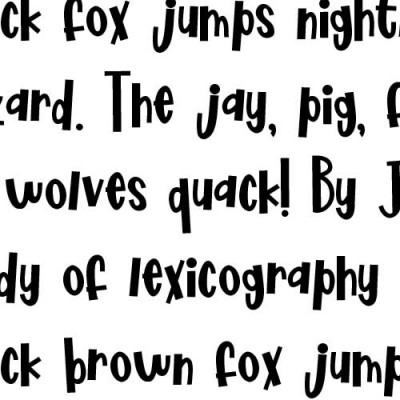 ck fox jumps night
zard. The jay, pig, f
wolves quack! By J
dy of lexicography
ck brown fox jump